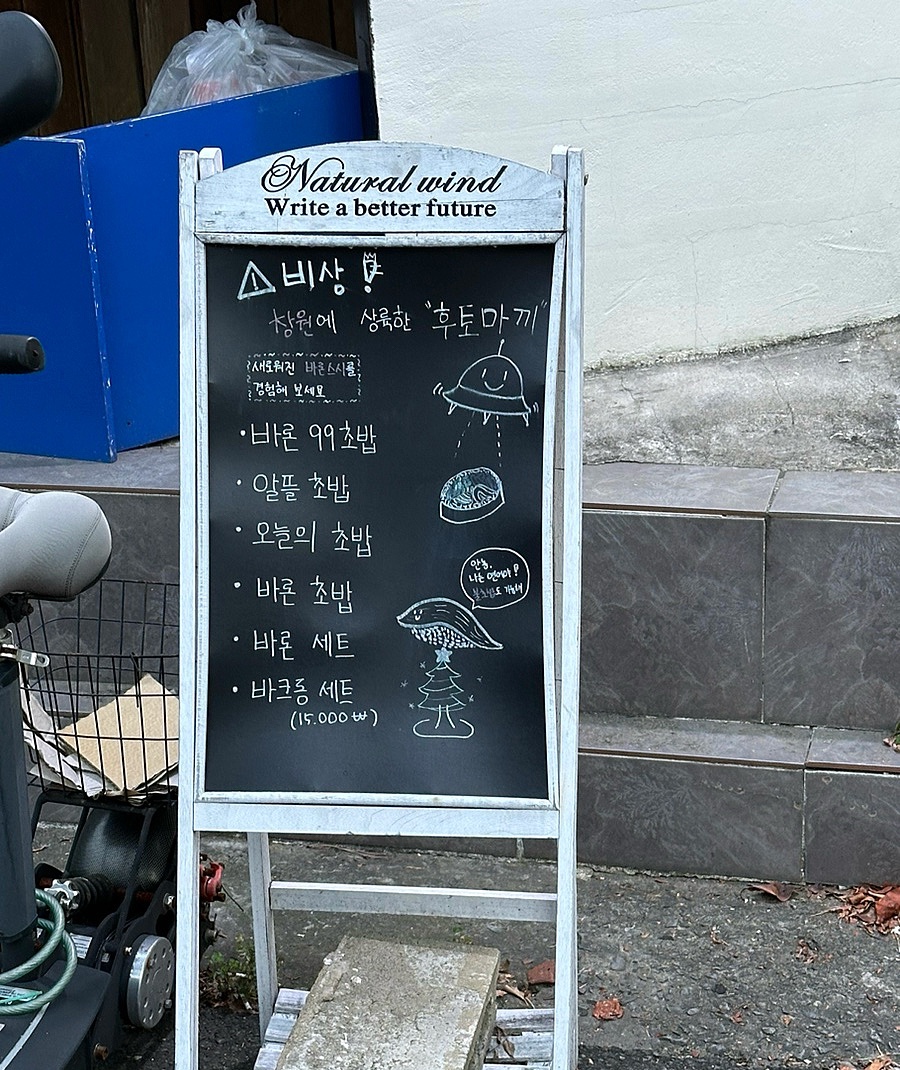 Natural wind
Write a better future
⚠ 비상 !
창원에 상륙한 "후토마끼"
새로워진 바른스시를
경험해 보세요
· 바른 99초밥
· 알뜰 초밥
· 오늘의 초밥
· 바른 초밥
· 바른 세트
· 바크롱 세트
(15.000₩)
안농,
나는 연어야!
도 가능해